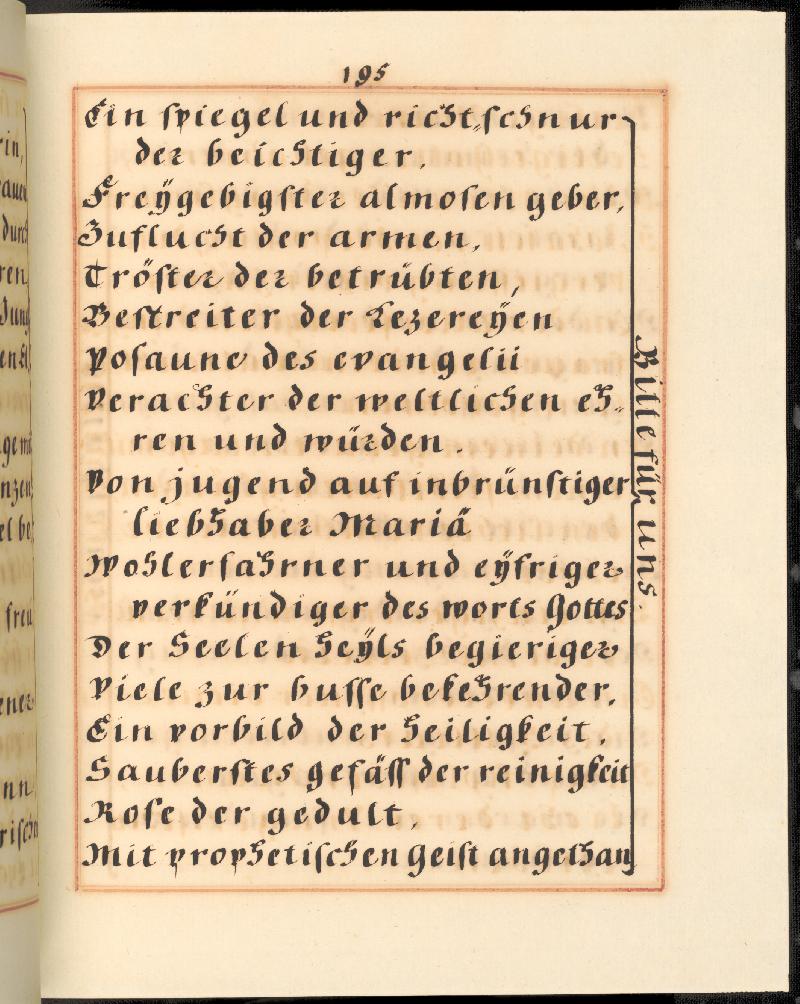 195
Ein spiegel und richt-schnur
der beichtiger,
Freÿgebigster almosen geber,
Zuflucht der armen,
Tröster der betrübten,
Bestreiter der Kezereÿen
Posaune des evangelii
Verachter der weltlichen eh-
ren und würden.
Von jugend auf inbrünstiger
liebhaber Mariä
Wohlerfahrner und eÿfriger
verkündiger des worts Gottes
Der Seelen heÿls begieriger
Viele zur busse bekehrender,
Ein vorbild der heiligkeit,
Sauberstes gefäss der reinigkeit
Rose der gedult,
Mit prophetischen Geist angethan,
Bitte für uns.